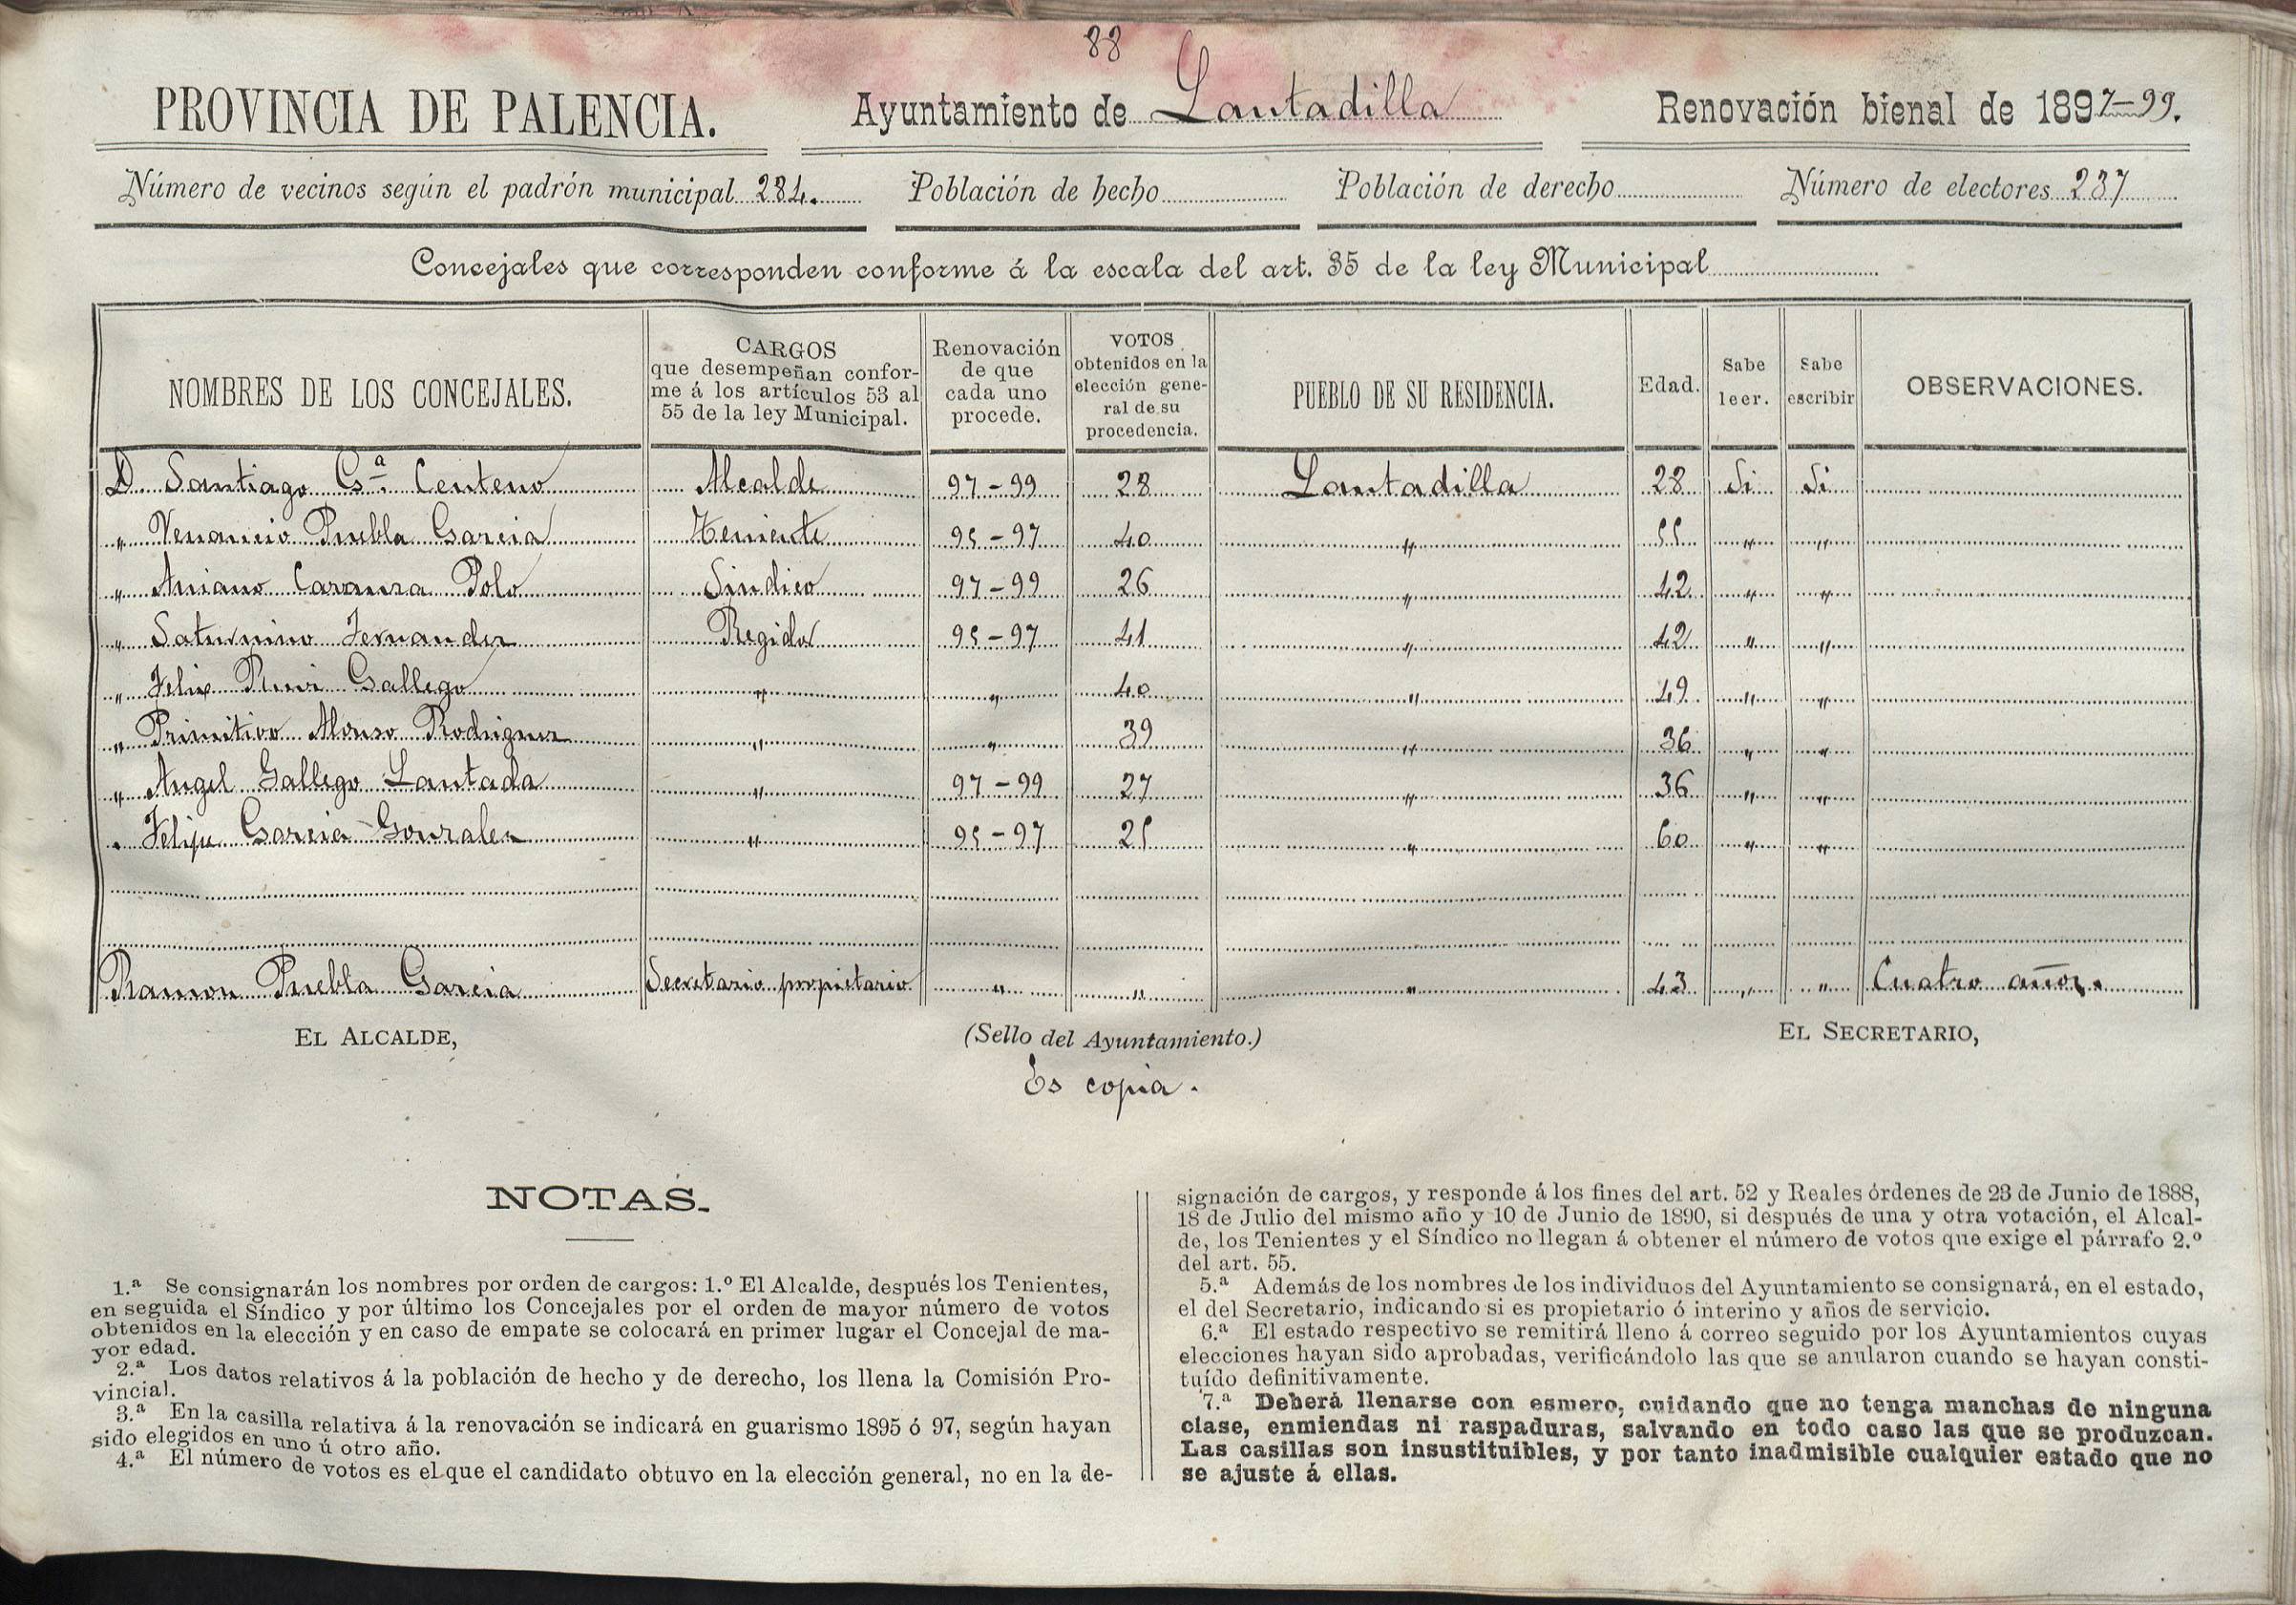 88
PROVINCIA DE PALENCIA. Ayuntamiento de Lantadilla Renovación bienal de 1897-99.
Número de vecinos según el padrón municipal 284. Población de hecho Población de derecho Número de electores 237
Concejales que corresponden conforme á la escala del art. 35 de la ley Municipal
NOMBRES DE LOS CONCEJALES.
CARGOS
que desempeñan confor-
me á los artículos 53 al
55 de la ley Municipal.
Renovación
de que
cada uno
procede.
VOTOS
obtenidos en la
elección gene-
ral de su
procedencia.
PUEBLO DE SU RESIDENCIA.
Edad.
Sabe
leer.
Sabe
escribir
OBSERVACIONES.
D. Santiago Gª. Centeno Alcalde 97-99 28 Lantadilla 28 Si Si
" Venancio Puebla Garcia Teniente 95-97 40 " 55 " "
" Aniano Caranza Polo Sindico 97-99 26 " 42 " "
" Saturnino Fernandez Regidor 95-97 41 " 42 " "
" Felix Gallego " " 40 " 49 " "
" Primitivo Alonso Rodriguez " " 39 " 36 " "
" Angel Gallego Lantada " 97-99 27 " 36 " "
" Felipe Garcia Gonzalez " 95-97 25 " 60 " "
Ramon Puebla Garcia Secretario propietario " " " 43 " " Cuatro años.
EL ALCALDE, (Sello del Ayuntamiento.) EL SECRETARIO,
Es copia.
NOTAS.
1.ª Se consignarán los nombres por orden de cargos: 1.º El Alcalde, después los Tenientes,
en seguida el Síndico y por último los Concejales por el orden de mayor número de votos
obtenidos en la elección y en caso de empate se colocará en primer lugar el Concejal de ma-
yor edad.
2.ª Los datos relativos á la población de hecho y de derecho, los llena la Comisión Pro-
vincial.
3.ª En la casilla relativa á la renovación se indicará en guarismo 1895 ó 97, según hayan
sido elegidos en uno ú otro año.
4.ª El número de votos es el que el candidato obtuvo en la elección general, no en la de-
signación de cargos, y responde á los fines del art. 52 y Reales órdenes de 23 de Junio de 1888,
18 de Julio del mismo año y 10 de Junio de 1890, si después de una y otra votación, el Alcal-
de, los Tenientes y el Síndico no llegan á obtener el número de votos que exige el párrafo 2.º
del art. 55.
5.ª Además de los nombres de los individuos del Ayuntamiento se consignará, en el estado,
el del Secretario, indicando si es propietario ó interino y años de servicio.
6.ª El estado respectivo se remitirá lleno á correo seguido por los Ayuntamientos cuyas
elecciones hayan sido aprobadas, verificándolo las que se anularon cuando se hayan consti-
tuído definitivamente.
7.ª Deberá llenarse con esmero, cuidando que no tenga manchas de ninguna
clase, enmiendas ni raspaduras, salvando en todo caso las que se produzcan.
Las casillas son insustituibles, y por tanto inadmisible cualquier estado que no
se ajuste á ellas.